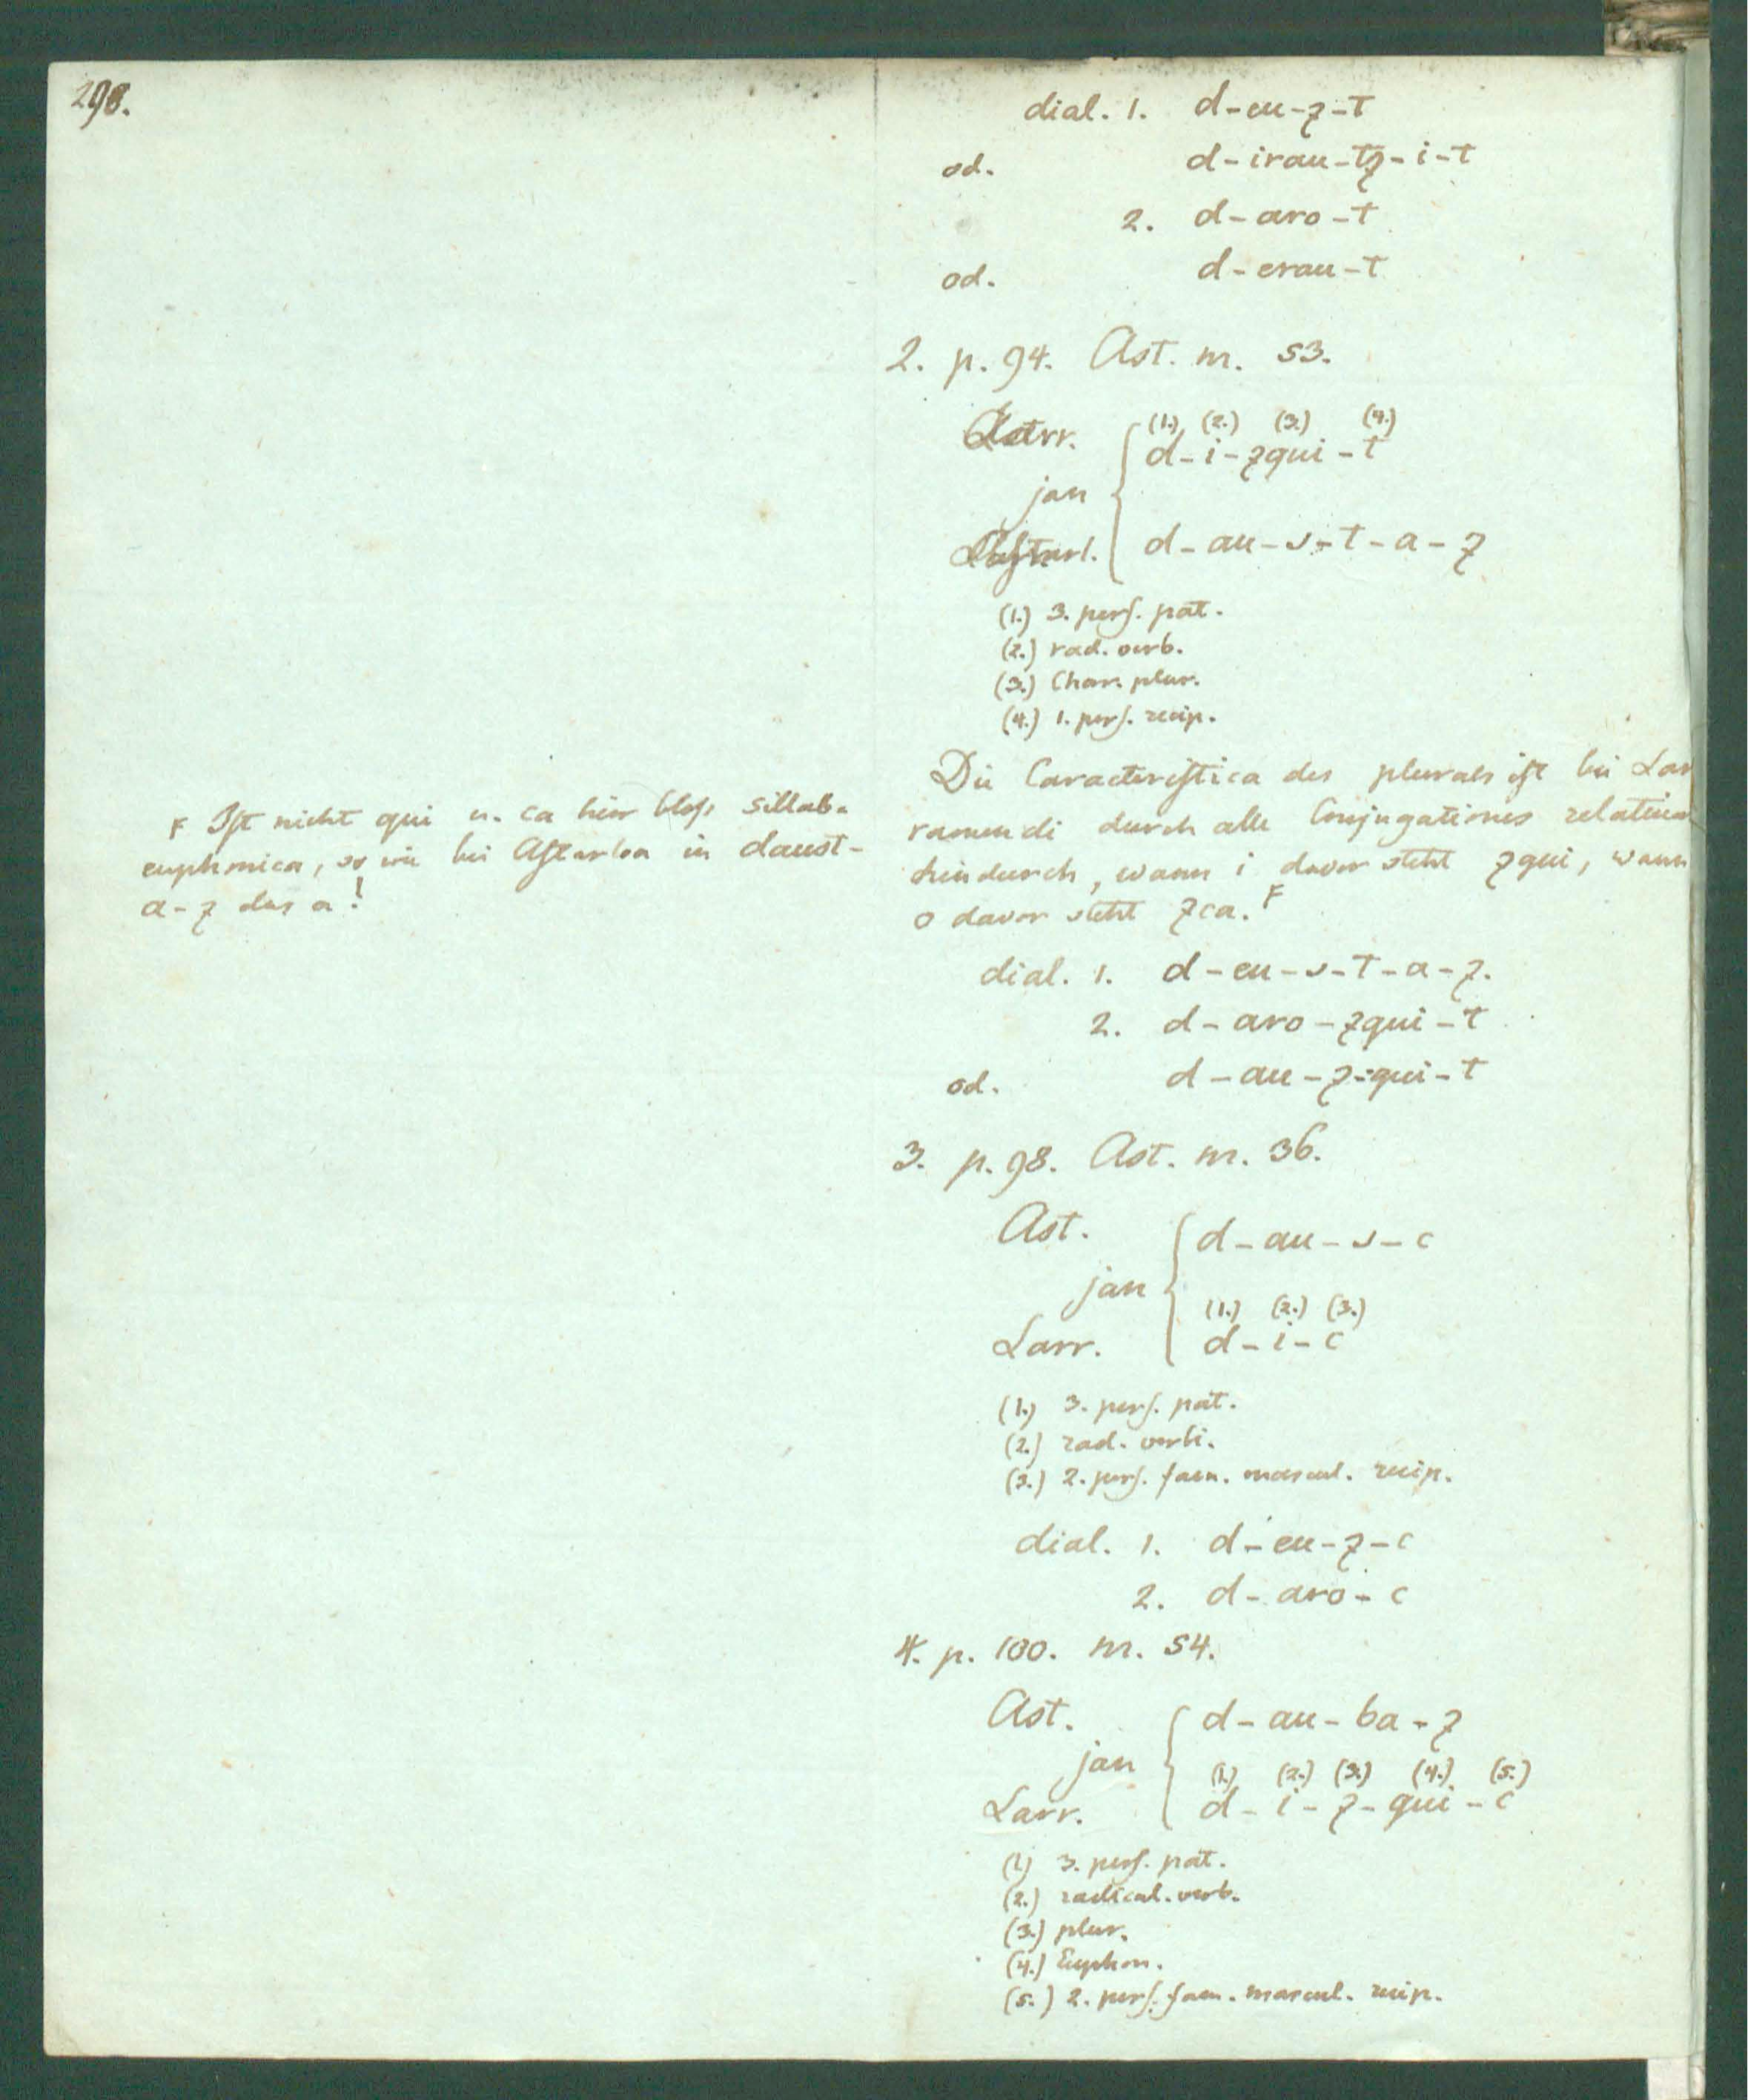 298.
dial. 1. d-eu-z-t
od. d-irau-tz-i-t
2. d-aro-t
od. d-erau-t
2. p. 94. Ast. nr. 53.
Larr.
(1.) (2.) (3.) (4.)
d-i-zqui-t
jan
Astarl. d-au-s-t-a-z
(1.) 3. pers. pat.
(2.) rad. verb.
(3.) Char. plur.
(4.) 1. pers. recip.
Die Caracteristica des plurals ist bei Lar
ramendi durch alle Conjugationes relativas
hindurch, wann i davor steht zqui, wann
o davor steht zca. F
F Ist nicht qui u. ca hier bloss sillab.
euphonica, so wie bei Astarloa in daust-
a-z das a!
dial. 1. d-eu-s-t-a-z.
2. d-aro-zqui-t
od. d-au-z-qui-t
3. p. 98. Ast. nr. 36.
Ast. d-au-s-c
jan
(1.) (2.) (3.)
Larr. d-i-c
(1.) 3. pers. pat.
(2.) rad. verbi.
(3.) 2. pers. fam. mascul. recip.
dial. 1. d-eu-z-c
2. d-aro-c
4. p. 100. nr. 54.
Ast. d-au-ba-z
jan
(1.) (2.) (3.) (4.) (5.)
Larr. d-i-z-qui-c
(1.) 3. pers. pat.
(2.) radical. verb.
(3.) plur.
(4.) Euphon.
(5.) 2. pers. fam. mascul. recip.